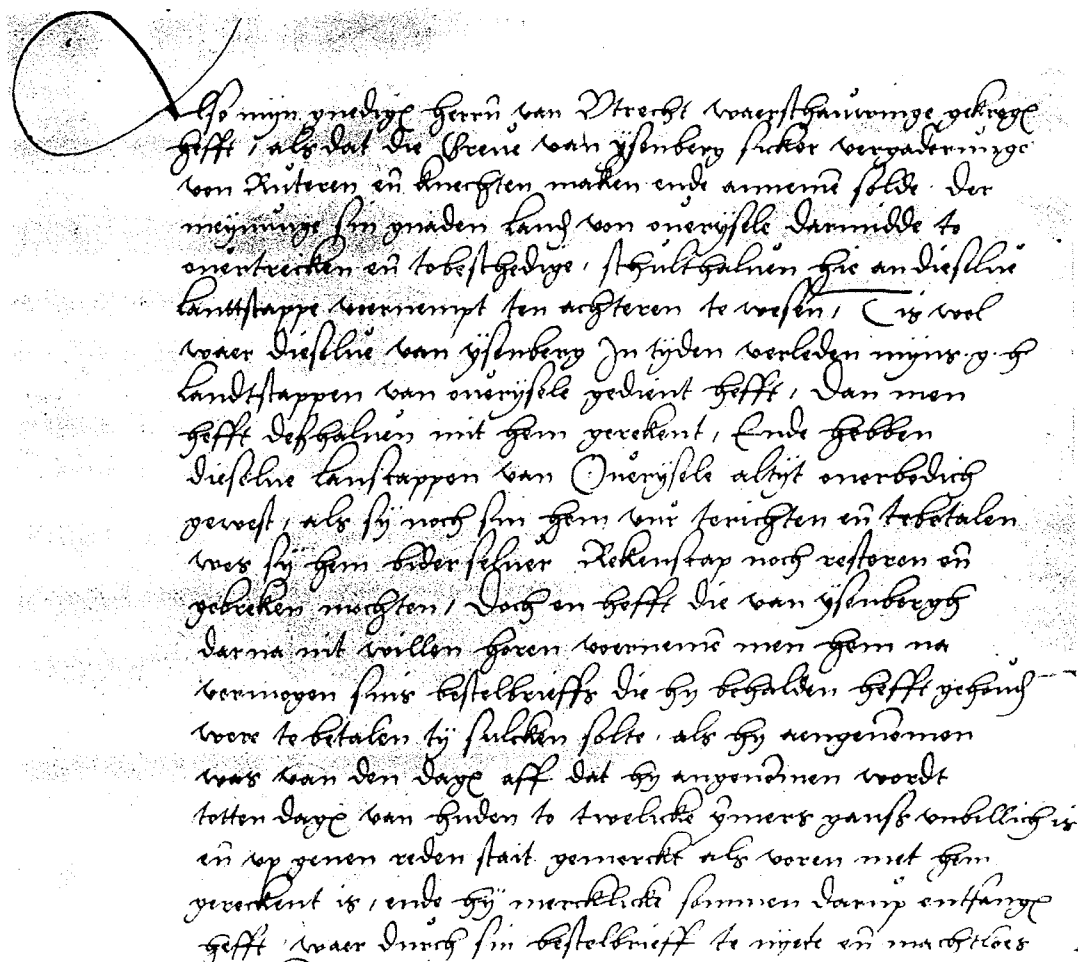 Also myn gnedige herrn van Utrecht waerschauwinge gekrege
hefft, als dat die Greve van ysenberg sicker vergaderunge
von Ruteren en knechten maken ende annemen solde der
meynunge sin gnaden Land von overysele darmidde to
overtrecken en tobeschedige, schulthalven hie an dieselve
Lanttscappe vernempt ten achteren te wesen, Tis wol
waer dieselve van ysenberg In tyden verleden myns g h
Landtscappen van overysele gedient hefft, Dan men
hefft deshalven mit hem gerekent, Ende hebben
dieselve Lanscappen van Overysele altyt overbodich
gewest, als sy noch sin hem uur torichten en tebetalen
wes sy hem bider selver Rekenscap noch resteren en
gebreken mochten, Doch en hefft die van ysenbergh
darna nit willen horen voernemen men hem na
vermogen sins bestelbrieffs die hy behalden hefft gehoud
were te betalen ty sulcken solte, als hy aengenomen
was van den dage aff dat hy angenomen wordt
totten dage van huden to twelicke ymers ganss unbillich is
en up genen reden stait gemerckt als voren met hem
gereckent is, ende hy mercklicke sommen darup entfange
hefft waer durch sin bestelbrieff te nyete en machtloes